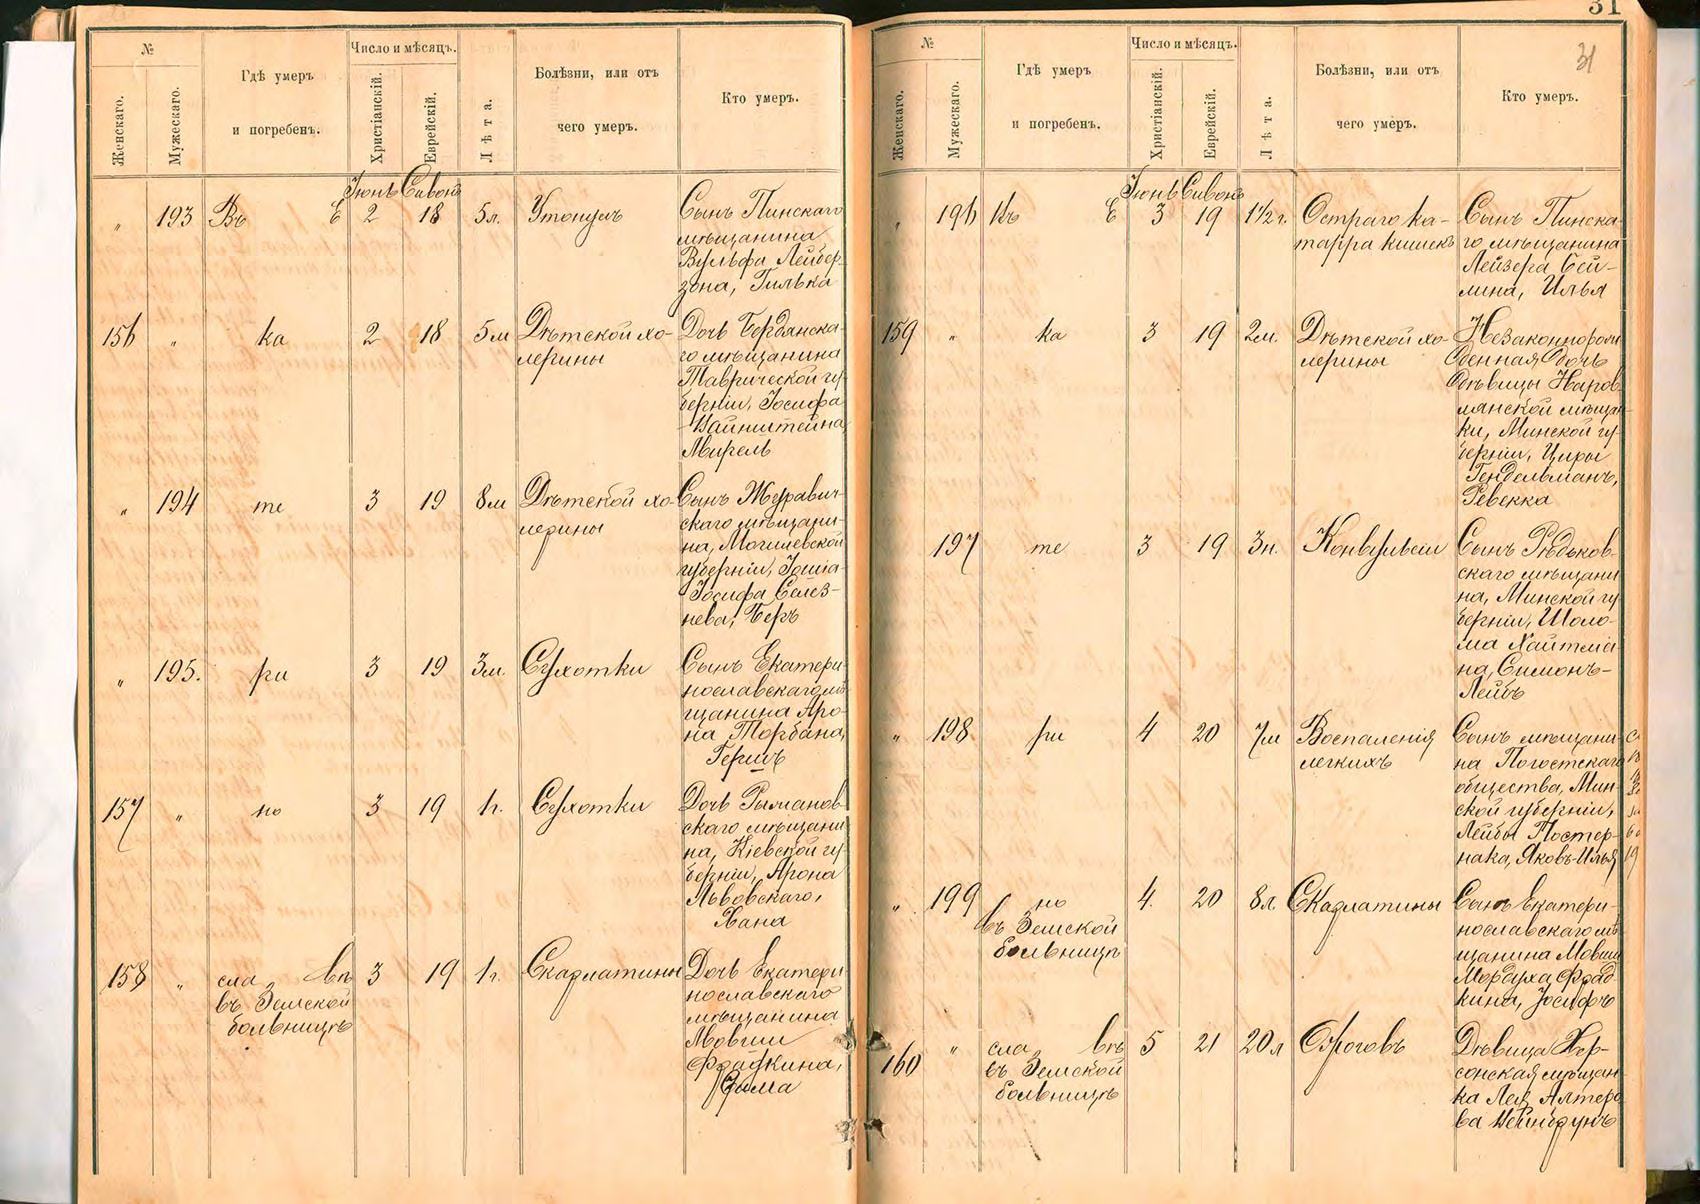 №
Женскаго.
Мужескаго.
Гдѣ умеръ
и погребенъ.
Число и мѣсяцъ.
Христіанскій.
Еврейскій.
Лѣта.
Болѣзни, или отъ
чего умеръ.
Кто умеръ.
Іюнь Сивонъ
„ 193 Въ Е 2 18 5л. Утонулъ
Сынъ Пинскаго
мѣщанина
Вульфа Лейбер-
зона, Гилька
156 „ ка 2 18 5м Дѣтской хо-
лерины
Дочь Бердянска-
го мѣщанина
Таврической гу-
берніи, Іосифа
Вайнштейна,
Мирель
„ 194 те 3 19 8м Дѣтской хо-
лерины
Сынъ Журавич-
скаго мѣщани-
на, Могилевской
губерніи, Іошіа-
Іосифа Селез-
нева, Беръ
„ 195. ри 3 19 3м. Сухотки
Сынъ Екатери-
нославскаго мѣ-
щанина Аро-
на Торбана,
Гершъ
157 „ но 3 19 1г. Сухотки
Дочь Рымановъ
скаго мѣщани-
на, Кіевской гу-
берніи, Арона
Львовскаго,
Хана
158 „ сла вѣ 3 19 1г. Скарлатины
въ Земской
больницѣ
Дочь Екатери
нославскаго
мѣщанина
Мовши
Фрадкина,
Фрима
31
31
№
Женскаго.
Мужескаго.
Гдѣ умеръ
и погребенъ.
Число и мѣсяцъ.
Христіанскій.
Еврейскій.
Лѣта.
Болѣзни, или отъ
чего умеръ.
Кто умеръ.
Іюнь Сивонъ
„ 196 Въ Е 3 19 1 1/2 г. Остраго ка-
тарра кишекъ
Сынъ Пинска-
го мѣщанина
Лейзера Бей-
лина, Илья
159 „ ка 3 19 2м. Дѣтской хо-
лерины
Незаконнорож
денная дочь
дѣвицы Наров-
лянской мѣщан-
ки, Минской гу-
берніи, Циры
Гендельманъ,
Ревекка
197 те 3 19 3н. Конвульсіи
Сынъ Рѣдьков-
скаго мѣщани
на, Минской гу-
берніи, Шоло-
ма Хайтма
на, Симонъ-
Лейбъ
„ 198 ри 4 20 7м Воспаленія
легкихъ
Сынъ мѣщани-
на Погостскаго
общества, Мин-
ской губерніи,
Лейбы Постер-
нака, Яковъ-Илья
„ 199 но 4. 20 8л. Скарлатины
въ Земской
больницѣ
Сынъ Екатери-
нославскаго мѣ
щанина Мовши
Мордуха Фрад-
кина, Іосифъ
160 „ сла вѣ 5 21 20л Ожоговъ
въ Земской
больницѣ
Дѣвица Хер-
сонская мѣщан-
ка Лея Алтеро
ва